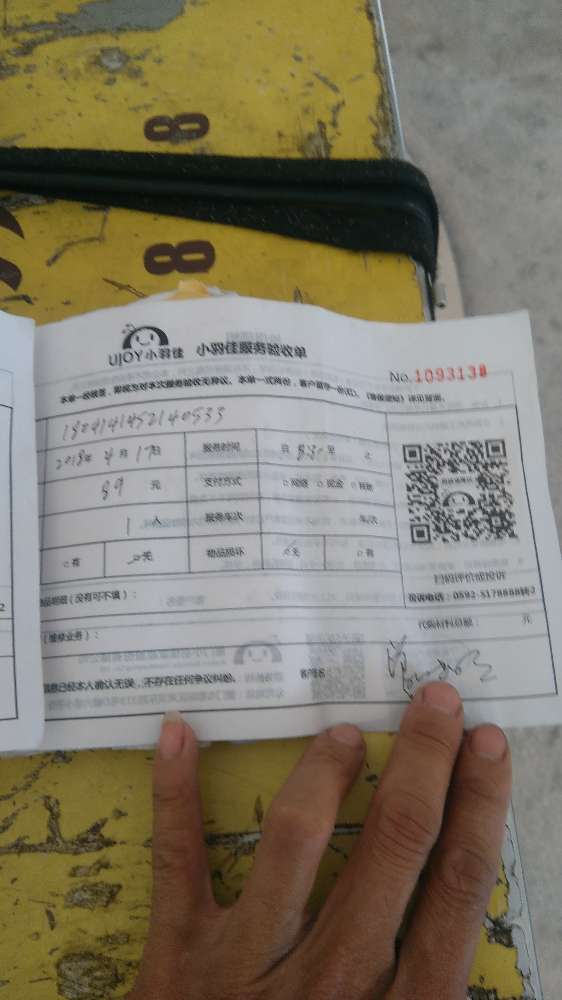 8
8
UJOY小羽佳 小羽佳服务验收单
No.1093138
本单一经签, 即视为对本次服务验收无异议。本单一式两份, 客户留存一份(红)。
1804141452140533
2018年4月17日 服务时间 自 8:30 至
89 元 支付方式 网络 现金
1 人 服务车次 车/次
有 无 物品损坏 无 有
扫码评价或投诉
投诉电话:0592-5178888转2
(没有可不填):
(维修业务): 代购材料总额: 元
信息已经本人确认无误,不存在任何争议纠纷。 客户签名: